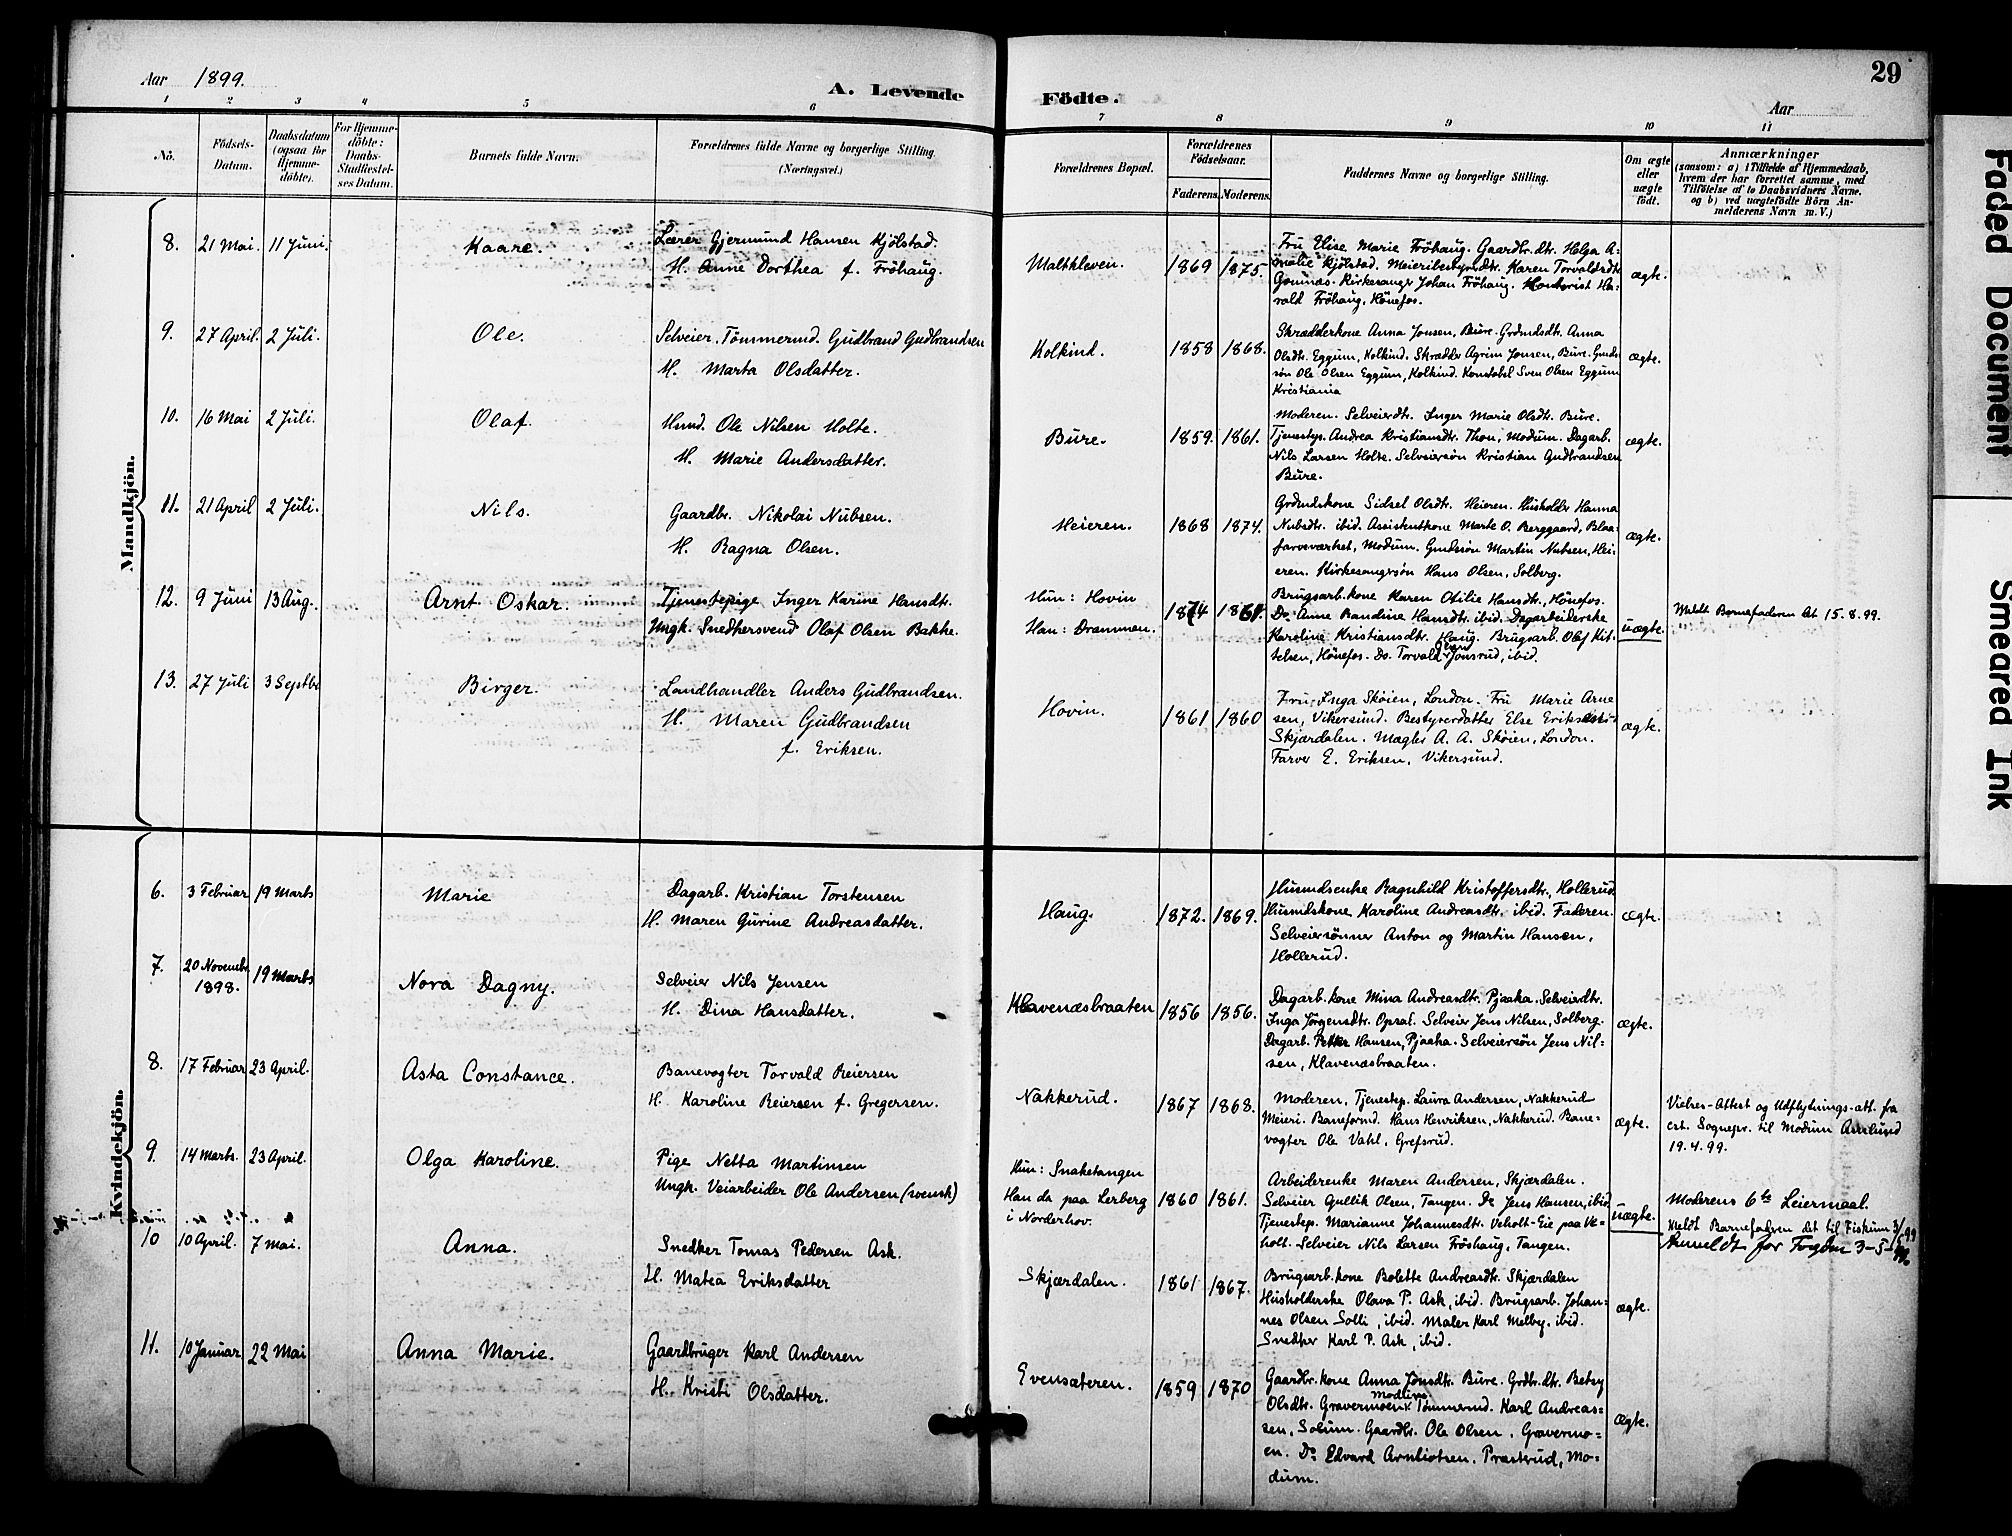 29
Aar 1899.
A. Levende Födte.
Aar
1 2 3 4 5 6 7 8 9 10 11
No.
Födsels-Datum.
Daabsdatum (ogsaa för Hjemme-döbte).
For Hjemme-döbte: Daabs-Stadfæstel-ses Datum.
Barnets fulde Navn.
Forældrenes fulde Navne og borgerlige Stilling. (Næringsvei.)
Forældrenes Bopæl.
Forældrenes Födselsaar.
Faderens. Moderens.
Faddernes Navne og borgerlige Stilling.
Om ægte eller uægte födt.
Anmærkninger
(saasom: a) i Tilfælde af Hjemmedaab,
hvem der har forrettet samme, med
Tilföielse af to Daabsvidners Navne.
og b) ved uægtefödte Börn An-
melderens Navn m. V.)
Mandkjön.
8. 21 Mai. 11 Juni. Kaare. Lærer Gjermund Hansen Kjölstad.
H. Anne Dorthea f. Fröhaug.
Maltkleven. 1869 1875.
Fru Elise Marie Fröhaug. Gaardbr.dtr. Helga A-
malie Kjölstad. Meieribestyrerdtr. Karen Torvaldsdtr.
Gomnæs. Kirkesanger Johan Fröhaug. Kontorist Ha-
rald Fröhaug, Hönefos.
ægte.
9. 27 April. 2 Juli. Ole. Selveier. Tömmermd. Gudbrand Gudbrandsen
H. Marta Olsdatter.
Kolkind. 1858 1868.
Skrædderkone Anna Jonsen, Bure. Grdmdsdtr. Anna
Olsdtr. Eggum, Kolkind. Skrædder Agrim Jonsen, Bure. Gmds-
søn Ole Olsen Eggum, Kolkind. Konstabel Sven Olsen Eggum
Kristiania
ægte.
10. 16 Mai 2 Juli. Olaf. Hmd. Ole Nilsen Holte.
H. Marie Andersdatter.
Bure. 1859. 1861.
Moderen. Selveierdtr. Inger Marie Olsdtr. Bure.
Tjenestep. Andrea Kristiansdtr. Thon, Modum. Dagarb.
Nils Larsen Holte. Selveiersön Kristian Gudbrandsen
Bure.
ægte.
11. 21 April 2 Juli. Nils. Gaardbr. Nikolai Nubsen.
H. Ragna Olsen.
Heieren. 1868 1874.
Grdmdskone Sidsel Olsdtr. Heieren. Husholder Hanna
Nubsdtr. ibid. Assistentkone Marte O. Berggaard, Blaa-
farveværket, Modum. Gmdssön Martin Nubsen, Hei-
eren. Kirkesangersön Hans Olsen, Solberg.
ægte.
12. 9 Juni 13 Aug. Arnt Oskar. Tjenestepige Inger Karine Hansdtr.
Ungk. Snedkersvend Olaf Olsen Bakke.
Hun: Hovin
Han: Drammen.
1874 1861.
Brugsarb. kone Karen Otilie Hansdtr., Hönefos.
Do Anne Randine Hansdtr. ibid. Dagarbeiderske
Karoline Kristiansdtr. Haug. Brugsarb. Olaf Kit-
telsen, Hönefos. Do. Torvald Jonsrud, ibid.
uægte.
Meldt Barnefaderen At 15.8.99.
13. 27 Juli 3 Septbr Birger. Landhandler Anders Gudbrandsen.
H. Maren Gudbrandsen
f. Eriksen.
Hovin. 1861 1860
Fru Inga Skøien, London. Fru Marie Arne
sen, Vikersund. Bestyrerdatter Else Eriksen
Skjærdalen. Mægler A. A. Skøien, London.
Farver E. Eriksen, Vikersund.
ægte.
Kvindekjön.
6. 3 Februar 19 Marts Marie Dagarb. Kristian Torstensen
H. Maren Gurine Andreasdatter.
Haug. 1872. 1869.
Husmdsenke Ragnhild Kristoffersdtr., Hollerud.
Husmdskone Karoline Andreasdtr. ibid. Faderen.
Selveiersönner Anton og Martin Hansen,
Hollerud.
ægte.
7. 20 Novembr. 1898. 19 Marts Nora Dagny. Selveier Nils Jensen
H. Dina Hansdatter.
Klavenæsbraaten 1856 1856.
Dagarb. kone Mina Andreasdtr. Pjaaka. Selveierdtr.
Inga Jörgensdtr. Opsal. Selveier Jens Nilsen, Solberg.
Dagarb. Petter Hansen, Pjaaka. Selveiersön Jens Nil-
sen, Klavenæsbraaten.
ægte.
8. 17 Februar 23 April. Asta Constance. Banevogter Torvald Reiersen
H. Karoline Reiersen f. Gregersen.
Nakkerud. 1867 1868.
Moderen, Tjenestep. Laura Andersen, Nakkerud
Meieri. Baneformd. Hans Henriksen, Nakkerud. Bane-
vogter Ole Vahl, Grefsrud.
ægte.
Vielses-Attest og Udflytnings-att. fra
cst. Sognepr. til Modum Asslund
19.4.99.
9. 14 Marts. 23 April. Olga Karoline. Pige Netta Martinsen
Ungk. Veiarbeider Ole Andersen (svensk)
Hun: Snaketangen
Han da paa Lerberg
i Norderhov.
1860 1861.
Arbeiderenke Maren Andersen, Skjærdalen.
Selveier Gullik Olsen, Tangen. Do Jens Hansen, ibid.
Tjenestep. Marianne Johannesdtr. Veholt-Eie paa Ve-
holt. Selveier Nils Larsen Fröshaug, Tangen.
uægte.
Moderens 6te Leiermaal.
Meldt Barnefaderen det til Fiskum 3/5 99
Anmeldt for Fogden 3-5-99.
10 10 April. 7 Mai. Anna. Snedker Tomas Pedersen Ask.
H. Matea Eriksdatter
Skjærdalen. 1861 1867.
Brugsarb. kone Bolette Andreasdtr. Skjærdalen
Husholderske Olava P. Ask, ibid. Brugsarb. Johan-
nes Olsen Solli, ibid. Maler Karl Melby. ibid.
Snedker Karl P. Ask, ibid.
ægte.
11. 10 Januar 22 Mai Anna Marie. Gaardbruger Karl Andersen
H. Kristi Olsdatter.
Evensæteren. 1859 1870
Gaardbr. kone Anna Jonsdtr. Bure. Grdbr.dtr. Betsy
Olsdtr. Gravermoen Modum. Tömmermd. Karl Andreas-
sen, Solum. Gaardbr. Ole Olsen, Gravermo-
en. Do Edvard Arnliotsen. Præsterud, Mo-
dum.
ægte.
Faded Document
Smeared Ink